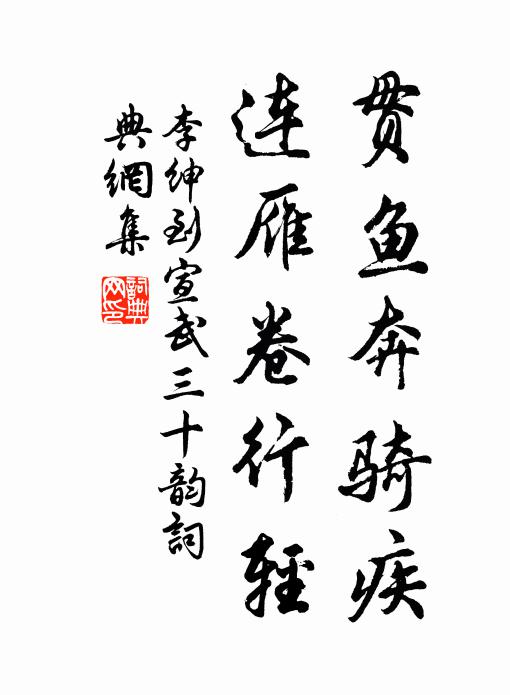 贯鱼奔骑疾
连雁卷行轻
李绅到宣武三十韵詞
典網集
詞典
网印